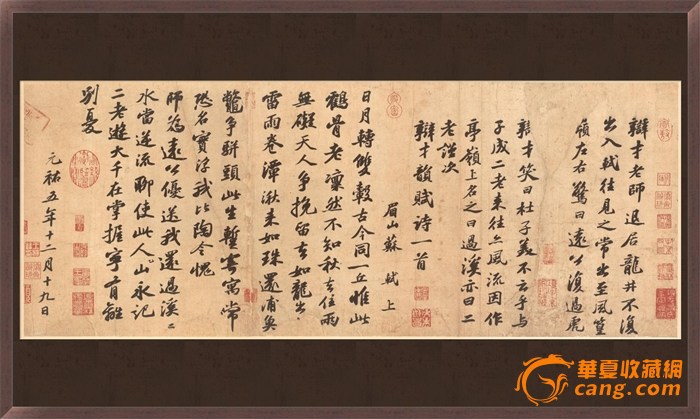 辯才老師退居龍井不復
出入軾往見之常出至風篁
嶺左右驚曰遠公復過虎
辯才笑曰杜子美不云乎與
子成二老來往亦風流因作
亭嶺上名之曰過溪亦曰二
老謹次
辯才韻賦詩一首
眉山蘇 軾上
日月轉雙轂古今同一丘惟此
鶴骨老凜然不知秋去住兩
無礙天人爭挽留去如龍出
雷雨卷潭湫來如珠還浦魚
鱉爭駢頭此生暫寄寓常
恐名實浮我比陶令愧
師為遠公優送我還過溪〻
水當逆流聊使此人山永記
二老遊大千在掌握寧有離
別憂
元祐五年十二月十九日
華夏收藏網
cang.com